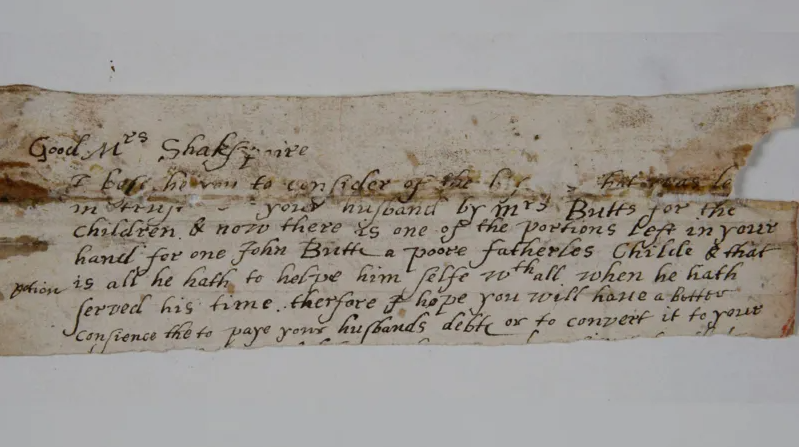 Good Mrs Shakspaire
I bese he you to consider of the that was le
in trust your husband by mrs Butts for the
Children & now there is one of the portions left in your
hand for one John Butts a poore fatherles Childe & that
potion is all he hath to helpe him selfe wth all when he hath
served his time therfore I hope you will have a better
Consience the to paye your husbands debts or to convert it to your